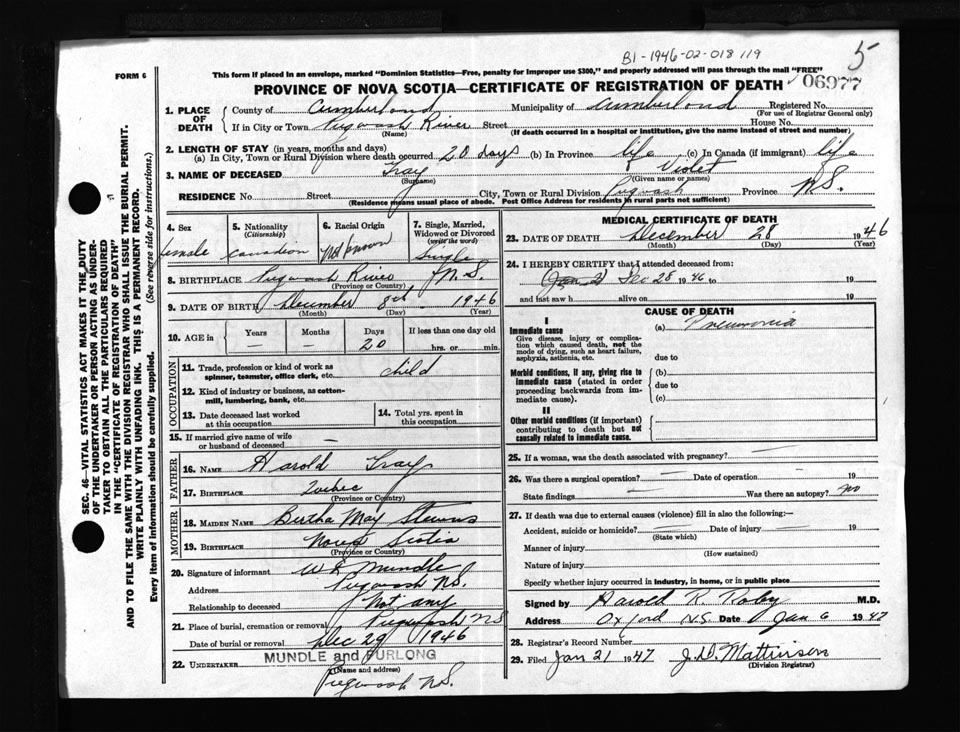 B1-1946-02-018119
5
FORM 6
This form if placed in an envelope, marked "Dominion Statistics—Free, penalty for improper use $300," and properly addressed will pass through the mail "FREE"
06977
PROVINCE OF NOVA SCOTIA—CERTIFICATE OF REGISTRATION OF DEATH
1. PLACE OF DEATH County of Cumberland Municipality of Cumberland Registered No.
(For use of Registrar General only)
If in City or Town Pugwash River Street House No.
(Name) (If death occurred in a hospital or institution, give the name instead of street and number)
2. LENGTH OF STAY (in years, months and days)
(a) In City, Town or Rural Division where death occurred 20 days (b) In Province life (c) In Canada (if immigrant) life
3. NAME OF DECEASED Gray Violet
(Surname) (Given name or names)
RESIDENCE No. Street City, Town or Rural Division Pugwash Province N.S.
(Residence means usual place of abode. Post Office Address for residents in rural parts not sufficient)
SEC. 46—VITAL STATISTICS ACT MAKES IT THE DUTY
OF THE UNDERTAKER OR PERSON ACTING AS UNDER-
TAKER TO OBTAIN ALL THE PARTICULARS REQUIRED
IN THE "CERTIFICATE OF REGISTRATION OF DEATH"
AND TO FILE THE SAME WITH THE DIVISION REGISTRAR WHO SHALL ISSUE THE BURIAL PERMIT.
WRITE PLAINLY WITH UNFADING INK. THIS IS A PERMANENT RECORD.
Every item of information should be carefully supplied. (See reverse side for instructions.)
4. Sex female
5. Nationality (Citizenship) Canadian
6. Racial Origin Not known
7. Single, Married, Widowed or Divorced (write the word) Single
8. BIRTHPLACE Pugwash River N.S.
(Province or Country)
9. DATE OF BIRTH December 8th 1946
(Month) (Day) (Year)
10. AGE in Years — Months — Days 20 If less than one day old hrs. or min.
OCCUPATION
11. Trade, profession or kind of work as spinner, teamster, office clerk, etc. child
12. Kind of industry or business, as cotton-mill, lumbering, bank, etc.
13. Date deceased last worked at this occupation
14. Total yrs. spent in this occupation
15. If married give name of wife or husband of deceased —
FATHER
16. NAME Harold Gray
17. BIRTHPLACE Quebec
(Province or Country)
MOTHER
18. MAIDEN NAME Bertha May Stevens
19. BIRTHPLACE Nova Scotia
(Province or Country)
20. Signature of informant W L Mundle
Address Pugwash N.S.
Relationship to deceased Not any
21. Place of burial, cremation or removal Pugwash N S
Date of burial or removal Dec 29 1946
22. UNDERTAKER MUNDLE and FURLONG
(Name and Address)
Pugwash N.S.
MEDICAL CERTIFICATE OF DEATH
23. DATE OF DEATH December 28 1946
(Month) (Day) (Year)
24. I HEREBY CERTIFY that I attended deceased from:
Dec 28 1946 to 19
and last saw h alive on 19
CAUSE OF DEATH
I
Immediate cause (a) Pneumonia
Give disease, injury or complication which caused death, not the mode of dying, such as heart failure, asphyxia, asthenia, etc.
due to
Morbid conditions, if any, giving rise to immediate cause (stated in order proceeding backwards from immediate cause).
(b)
due to
(c)
II
Other morbid conditions (if important) contributing to death but not causally related to immediate cause.
25. If a woman, was the death associated with pregnancy? —
26. Was there a surgical operation? — Date of operation — 19
State findings — Was there an autopsy? no
27. If death was due to external causes (violence) fill in also the following:
Accident, suicide or homicide? — Date of injury — 19
(State which)
Manner of injury
(How sustained)
Nature of injury
Specify whether injury occurred in industry, in home, or in public place
Signed by Harold R. Roby M.D.
Address Oxford N.S. Date Jan 6 1947
28. Registrar's Record Number
29. Filed Jan 21 1947 J.D. Mattinson
(Division Registrar)